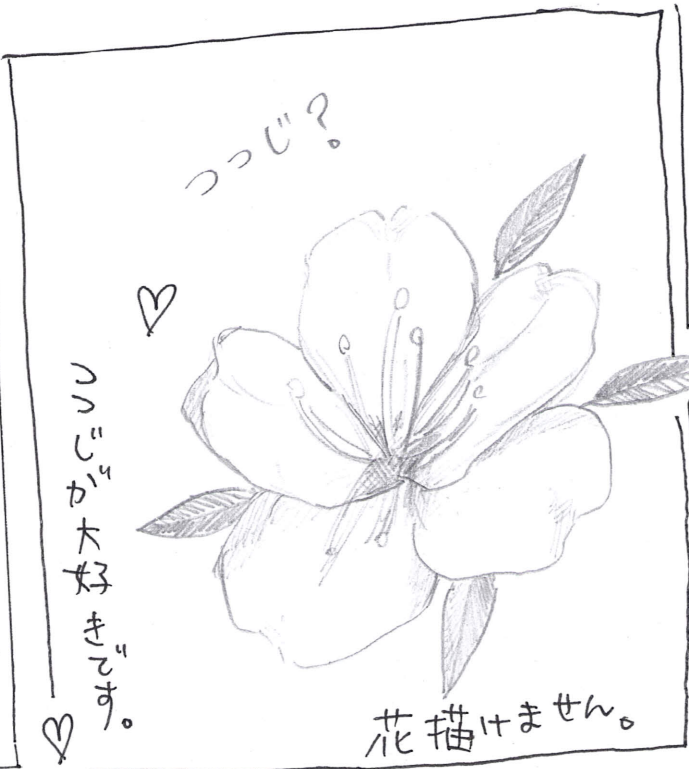 つつじ？
つつじが大好きです。
花描けません。